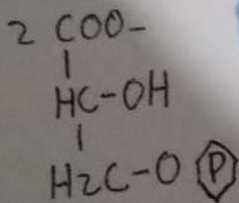 2 COO-
HC-OH
H2C-O P